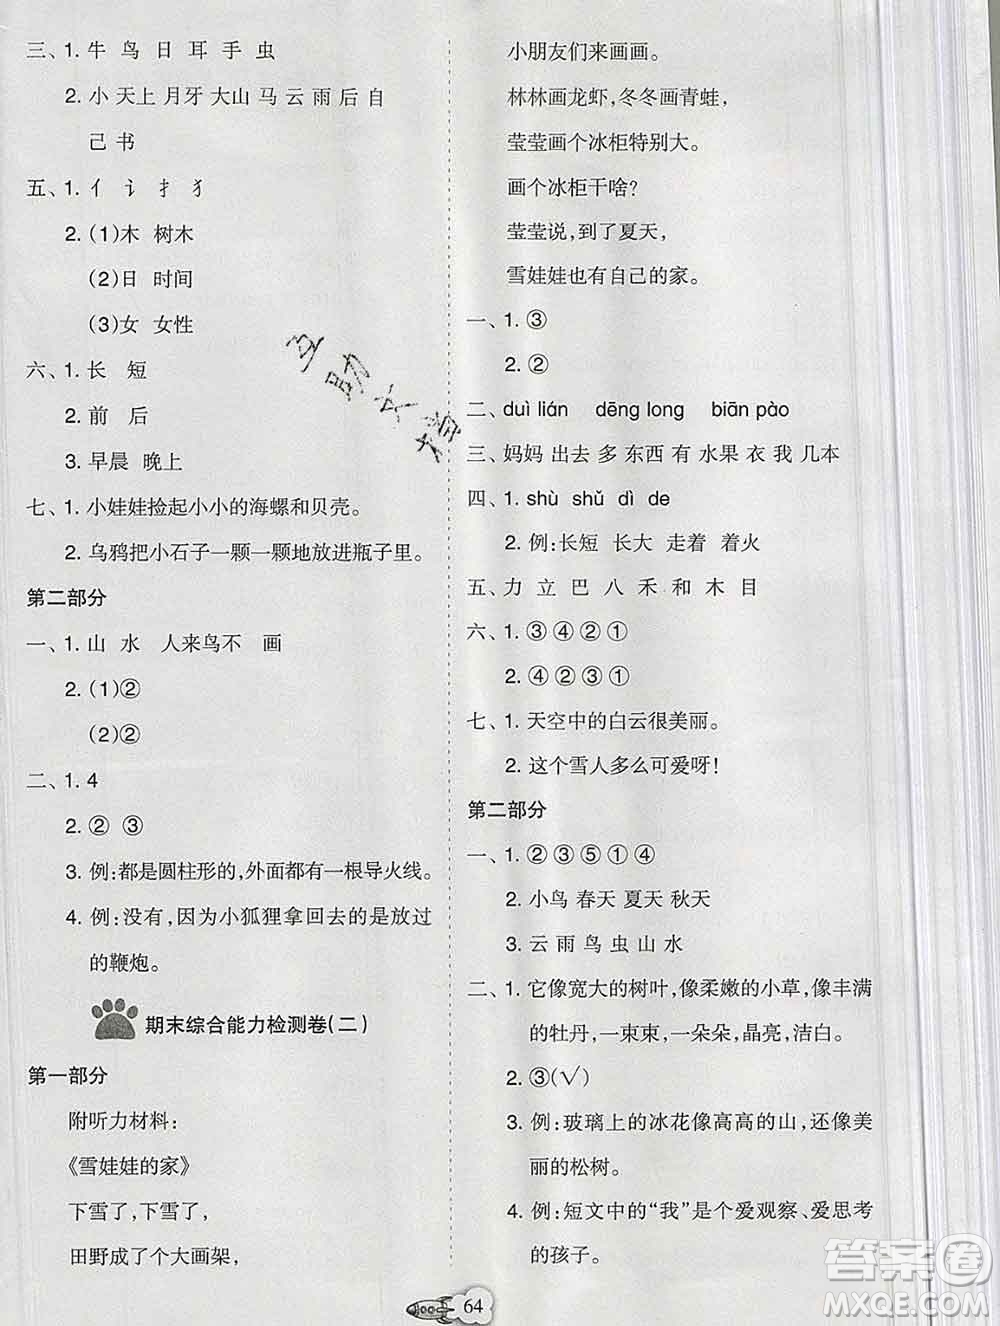 三、1. 牛 鸟 日 耳 手 虫
2. 小 天上 月牙 大山 马 云 雨 后 自
己 书
五、1. 亻 讠 扌 犭
2. (1)木 树木
(2)日 时间
(3)女 女性
六、1. 长 短
2. 前 后
3. 早晨 晚上
七、1. 小娃娃捡起小小的海螺和贝壳。
2. 乌鸦把小石子一颗一颗地放进瓶子里。
第二部分
一、1. 山 水 人来鸟不 画
2. (1)②
(2)②
二、1. 4
2. ② ③
3. 例:都是圆柱形的,外面都有一根导火线。
4. 例:没有,因为小狐狸拿回去的是放过
的鞭炮。
期末综合能力检测卷(二)
第一部分
附听力材料:
《雪娃娃的家》
下雪了,下雪了,
田野成了个大画架,
小朋友们来画画。
林林画龙虾,冬冬画青蛙,
莹莹画个冰柜特别大。
画个冰柜干啥?
莹莹说,到了夏天,
雪娃娃也有自己的家。
一、1. ③
2. ②
二、duì lián dēng long biān pào
三、妈妈 出去 多 东西 有 水果 衣 我 几本
四、1. shù shǔ dì de
2. 例:长短 长大 走着 着火
五、力 立 巴 八 禾 和 木 目
六、1. ③④②①
2. ④②③①
七、1. 天空中的白云很美丽。
2. 这个雪人多么可爱呀!
第二部分
一、1. ②③⑤①④
2. 小鸟 春天 夏天 秋天
3. 云 雨 鸟 虫 山 水
二、1. 它像宽大的树叶,像柔嫩的小草,像丰满
的牡丹,一束束,一朵朵,晶亮,洁白。
2. ③(√)
3. 例:玻璃上的冰花像高高的山,还像美
丽的松树。
4. 例:短文中的“我”是个爱观察、爱思考
的孩子。
64
互助文档
答案圈
MXQE.COM